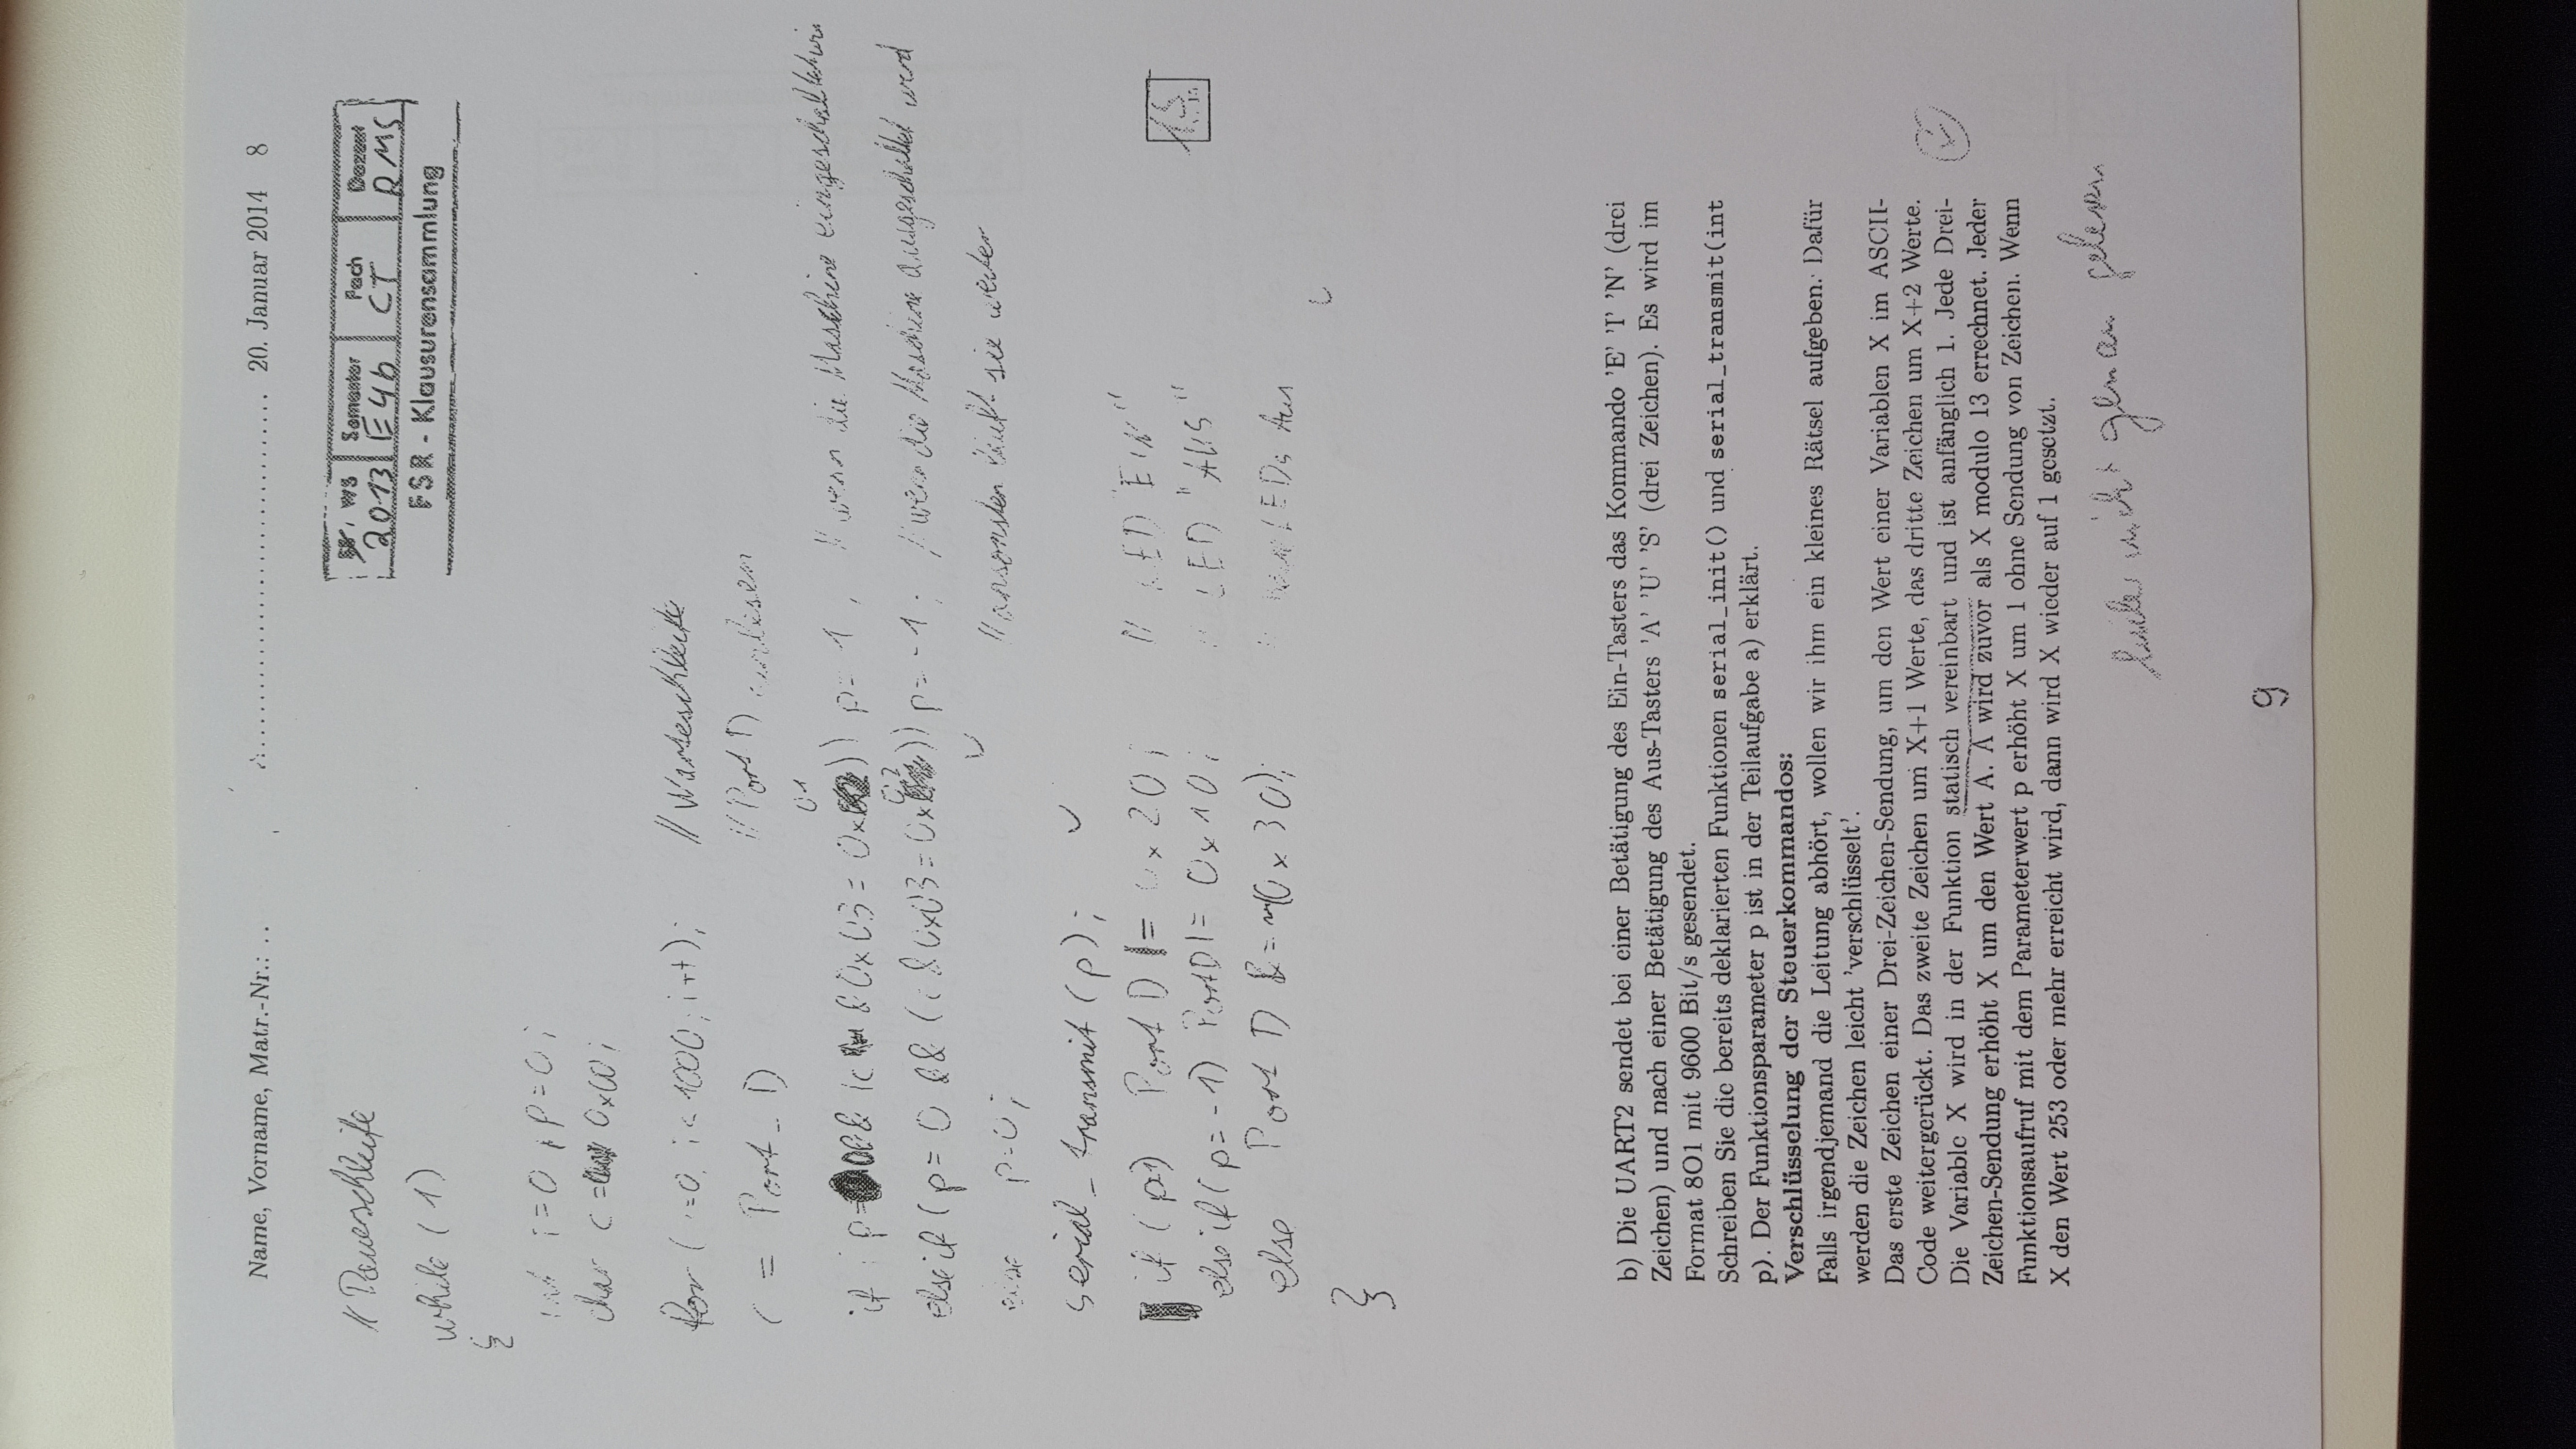 Name, Vorname, Matr.-Nr.: .. .................................. 20. Januar 2014 8
SS, WS Semester Fach Dozent
2013 E4b CT RMS
FSR - Klausurensammlung
// Dauerschleife
while (1)
{
int i=0, p=0;
char c = 0x00;
for (i=0; i<1000; i++); // Warteschleife
c = Port_D // Port D einlesen
01
if ( p= 0 && (c & 0x03 = 0x )) p= 1 ; // wenn die Maschine eingeschaltet wird
02
else if (p= 0 && (c & 0x03 = 0x )) p= -1 ; // wenn die Maschine ausgeschaltet wird
else p=0; // ansonsten läuft sie weiter
serial_transmit (p);
if (p=1) Port D |= 0x20; // LED "EIN"
else if (p= -1) Port D |= 0x10; // LED "AUS"
else Port D &= ~(0x30); // LEDs Aus
}
15
b) Die UART2 sendet bei einer Betätigung des Ein-Tasters das Kommando 'E' 'I' 'N' (drei
Zeichen) und nach einer Betätigung des Aus-Tasters 'A' 'U' 'S' (drei Zeichen). Es wird im
Format 8O1 mit 9600 Bit/s gesendet.
Schreiben Sie die bereits deklarierten Funktionen serial_init() und serial_transmit(int
p). Der Funktionsparameter p ist in der Teilaufgabe a) erklärt.
Verschlüsselung der Steuerkommandos:
Falls irgendjemand die Leitung abhört, wollen wir ihm ein kleines Rätsel aufgeben. Dafür
werden die Zeichen leicht 'verschlüsselt'.
Das erste Zeichen einer Drei-Zeichen-Sendung, um den Wert einer Variablen X im ASCII-
Code weitergerückt. Das zweite Zeichen um X+1 Werte, das dritte Zeichen um X+2 Werte.
Die Variable X wird in der Funktion statisch vereinbart und ist anfänglich 1. Jede Drei-
Zeichen-Sendung erhöht X um den Wert A. A wird zuvor als X modulo 13 errechnet. Jeder
Funktionsaufruf mit dem Parameterwert p erhöht X um 1 ohne Sendung von Zeichen. Wenn
X den Wert 253 oder mehr erreicht wird, dann wird X wieder auf 1 gesetzt.
leider nicht genau gelesen
9